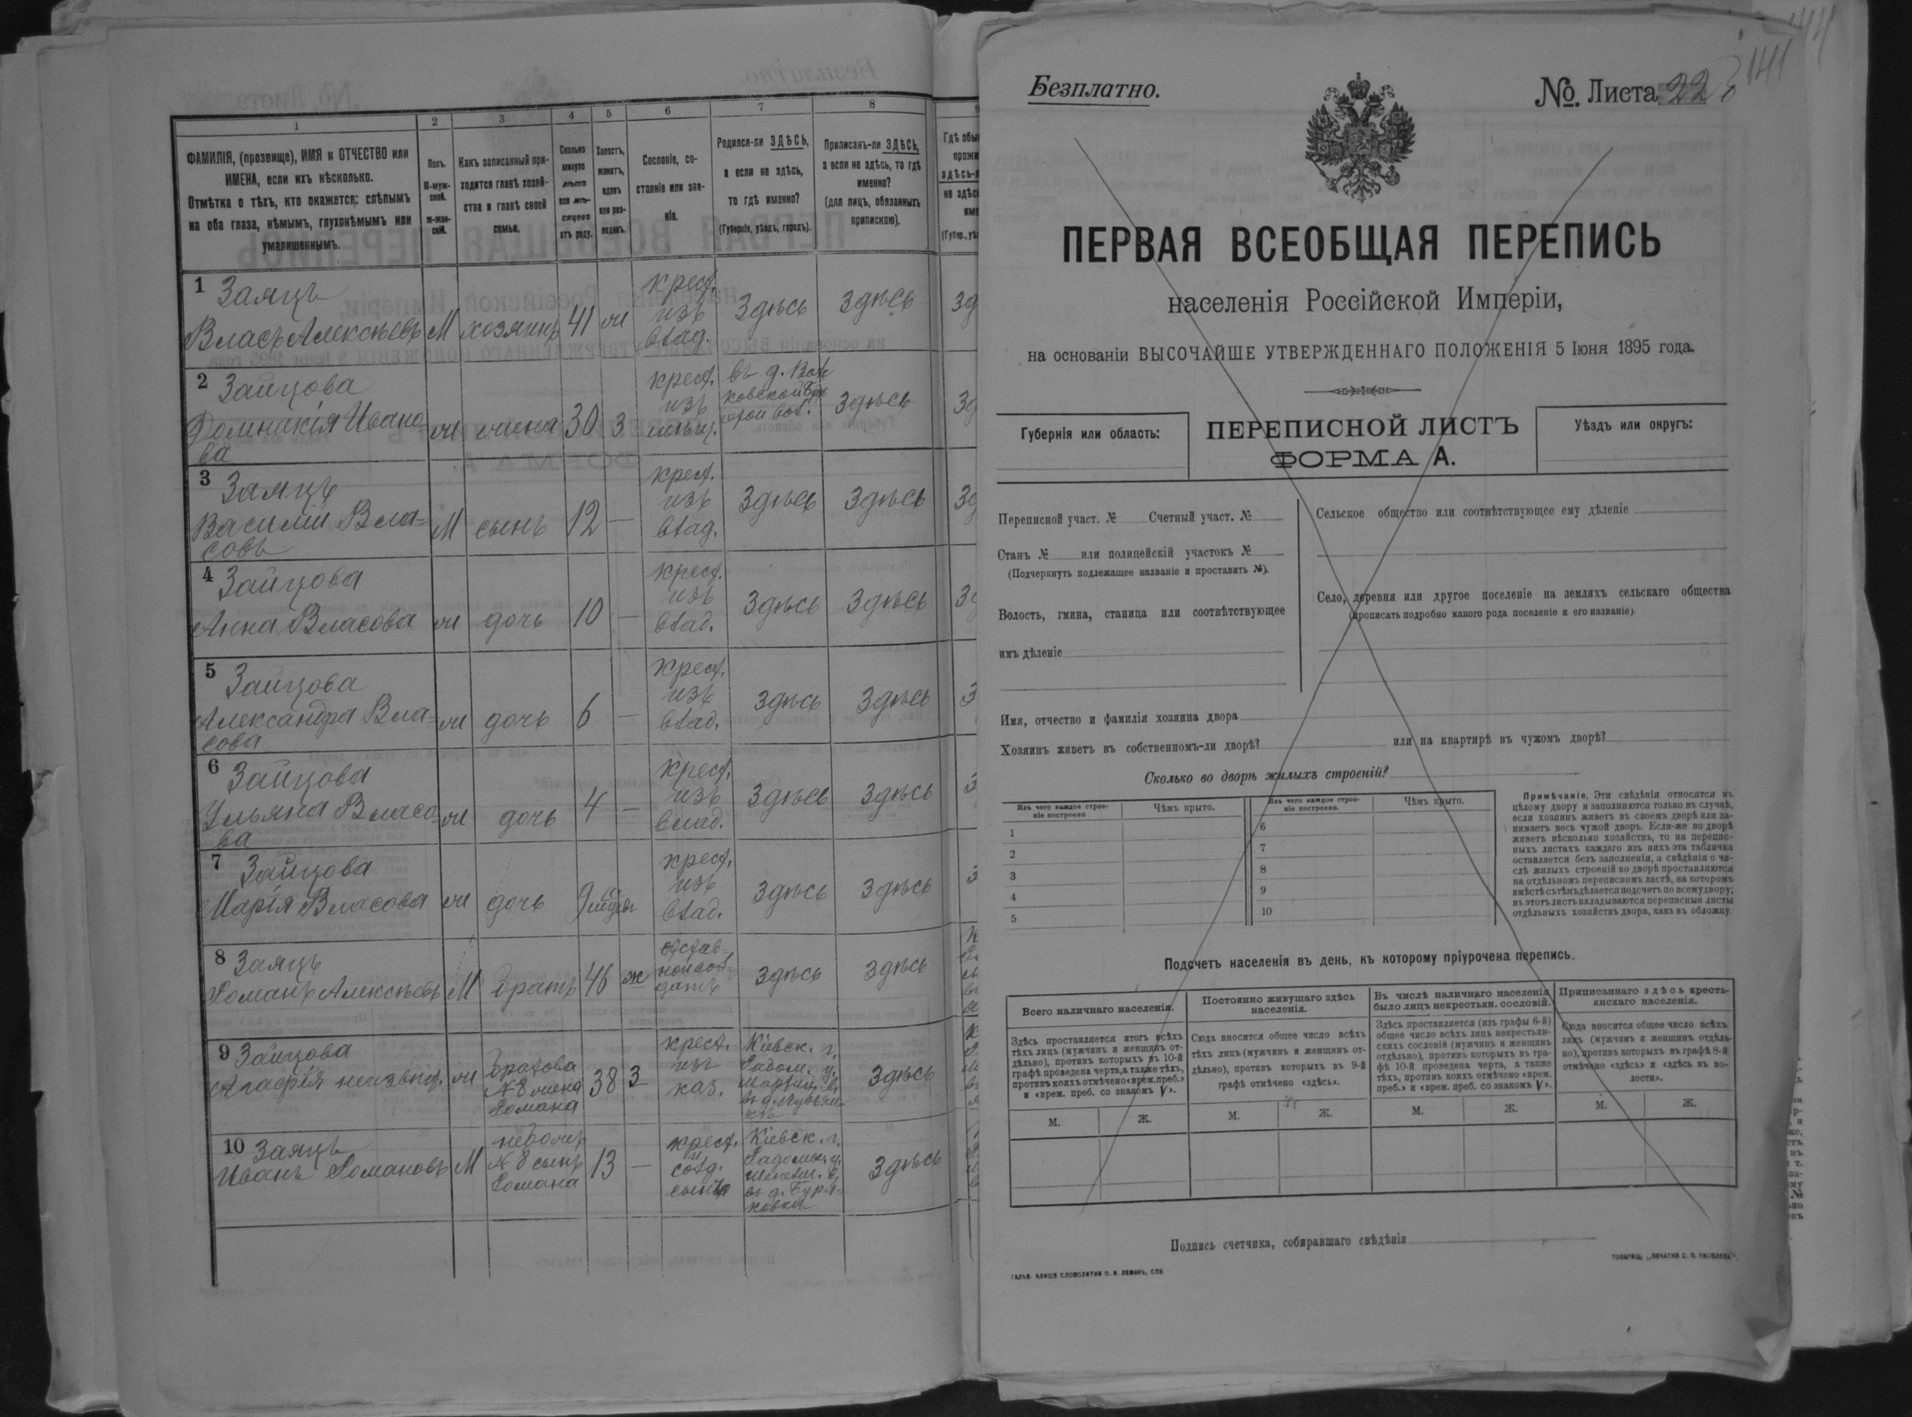 1
2
3
4
5
6
7
8
ФАМИЛІЯ, (прозвище), ИМЯ и ОТЧЕСТВО или
ИМЕНА, если ихъ нѣсколько.
Отмѣтка о тѣхъ, кто окажется: слѣпымъ
на оба глаза, нѣмымъ, глухонѣмымъ или
умалишеннымъ.
Полъ.
М-муж-
ской.
ж-жен-
скій.
Какъ записанный при-
ходится главѣ хозяй-
ства и главѣ своей
семьи.
Сколько
минуло
лѣтъ
или мѣ-
сяцевъ
отъ роду.
Холостъ,
женатъ,
вдовъ
или раз-
веденъ.
Сословіе, со-
стояніе или зва-
ніе.
Родился-ли ЗДѢСЬ,
а если не здѣсь,
то гдѣ именно?
(Губернія, уѣздъ, городъ).
Приписанъ-ли ЗДѢСЬ,
а если не здѣсь, то гдѣ
именно?
(для лицъ, обязанныхъ
припискою).
1 Заяцъ
Власъ Алексѣевъ М хозяинъ 41
крест.
изъ
влад.
Здѣсь Здѣсь
2 Зайцова
Домникія Ивано-
ва
жена 30 З
крест.
изъ
Здѣсь
3 Заяцъ
Василій Вла-
совъ
М сынъ 12 —
крест.
изъ
влад.
Здѣсь Здѣсь
4 Зайцова
Анна Власова ж дочь 10 —
крест.
изъ
влад.
Здѣсь Здѣсь
5 Зайцова
Александра Вла-
сова
ж дочь 6 —
крест.
изъ
влад.
Здѣсь Здѣсь
6 Зайцова
Ульяна Власо-
ва
ж дочь 4 —
крест.
изъ
влад.
Здѣсь Здѣсь
7 Зайцова
Марія Власова ж дочь 9
крест.
изъ
влад.
Здѣсь Здѣсь
8 Заяцъ
Романъ Алексѣевъ М братъ 46 ж
отстав-
ной сол-
датъ
Здѣсь Здѣсь
9 Зайцова
Агафія ж
братова
№ 8 жена
Романа
38 З
крест.
изъ
каз.
Кіевск. г.
Радом. у.
Здѣсь
10 Заяцъ
Иванъ Романовъ М
№ 8 сынъ
Романа
13 —
крест.
солд.
сынъ
Кіевск. г.
Радомыс. у.
Здѣсь
Безплатно.
№. Листа 22
141
ПЕРВАЯ ВСЕОБЩАЯ ПЕРЕПИСЬ
населенія Россійской Имперіи,
на основаніи ВЫСОЧАЙШЕ УТВЕРЖДЕННАГО ПОЛОЖЕНІЯ 5 Іюня 1895 года.
Губернія или область:
ПЕРЕПИСНОЙ ЛИСТЪ
ФОРМА А.
Уѣздъ или округъ:
Переписной участ. № Счетный участ. №
Станъ № или полицейскій участокъ №
(Подчеркнуть подлежащее названіе и проставить №).
Волость, гмина, станица или соотвѣтствующее
имъ дѣленіе
Сельское общество или соотвѣтствующее ему дѣленіе
Село, деревня или другое поселеніе на земляхъ сельскаго общества
(прописать подробно какого рода поселеніе и его названіе).
Имя, отчество и фамилія хозяина двора
Хозяинъ живетъ въ собственномъ-ли дворѣ? или на квартирѣ въ чужомъ дворѣ?
Сколько во дворѣ жилыхъ строеній?
Изъ чего каждое строе-
ніе построено
Чѣмъ крыто.
Изъ чего каждое строе-
ніе построено.
Чѣмъ крыто.
1
2
3
4
5
6
7
8
9
10
Примѣчаніе. Эти свѣдѣнія относятся къ
цѣлому двору и заполняются только въ случаѣ,
если хозяинъ живетъ въ своемъ дворѣ или за-
нимаетъ весь чужой дворъ. Если-же во дворѣ
живетъ нѣсколько хозяйствъ, то на перепис-
ныхъ листахъ каждаго изъ нихъ эта табличка
оставляется безъ заполненія, а свѣдѣнія о чи-
слѣ жилыхъ строеній во дворѣ проставляются
на отдѣльномъ переписномъ листѣ, на которомъ
вмѣстѣ съ тѣмъ дѣлается подсчетъ по всему двору;
въ этотъ листъ вкладываются переписные листы
отдѣльныхъ хозяйствъ двора, какъ въ обложку.
Подсчетъ населенія въ день, къ которому пріурочена перепись.
Всего наличнаго населенія.
Здѣсь проставляется итогъ всѣхъ
тѣхъ лицъ (мужчинъ и женщинъ от-
дѣльно), противъ которыхъ въ 10-й
графѣ проведена черта, а также тѣхъ,
противъ коихъ отмѣчено «врем. преб.»
и «врем. преб. со знакомъ V».
Постоянно живущаго здѣсь
населенія.
Сюда вносится общее число всѣхъ
тѣхъ лицъ (мужчинъ и женщинъ от-
дѣльно), противъ которыхъ въ 9-й
графѣ отмѣчено «здѣсь».
Въ числѣ наличнаго населенія
было лицъ некрестьян. сословій.
Здѣсь проставляется (изъ графы 6-й)
общее число всѣхъ лицъ некрестьян-
скихъ сословій (мужчинъ и женщинъ
отдѣльно), противъ которыхъ въ гра-
фѣ 10-й проведена черта, а также
тѣхъ, противъ коихъ отмѣчено «врем.
преб.» и «врем. преб. со знакомъ V».
Приписаннаго здѣсь кресть-
янскаго населенія.
Сюда вносится общее число всѣхъ
лицъ (мужчинъ и женщинъ отдѣль-
но), противъ которыхъ въ графѣ 8-й
отмѣчено «здѣсь» и «здѣсь къ во-
лости».
М. Ж. М. Ж. М. Ж. М. Ж.
Подпись счетчика, собиравшаго свѣдѣнія
ГАЛЬВ. КЛИШЕ СЛОВОЛИТНИ О. И. ЛЕМАНЪ, СПБ
ТОВАРИЩ. „ПЕЧАТНЯ С. П. ЯКОВЛЕВА".